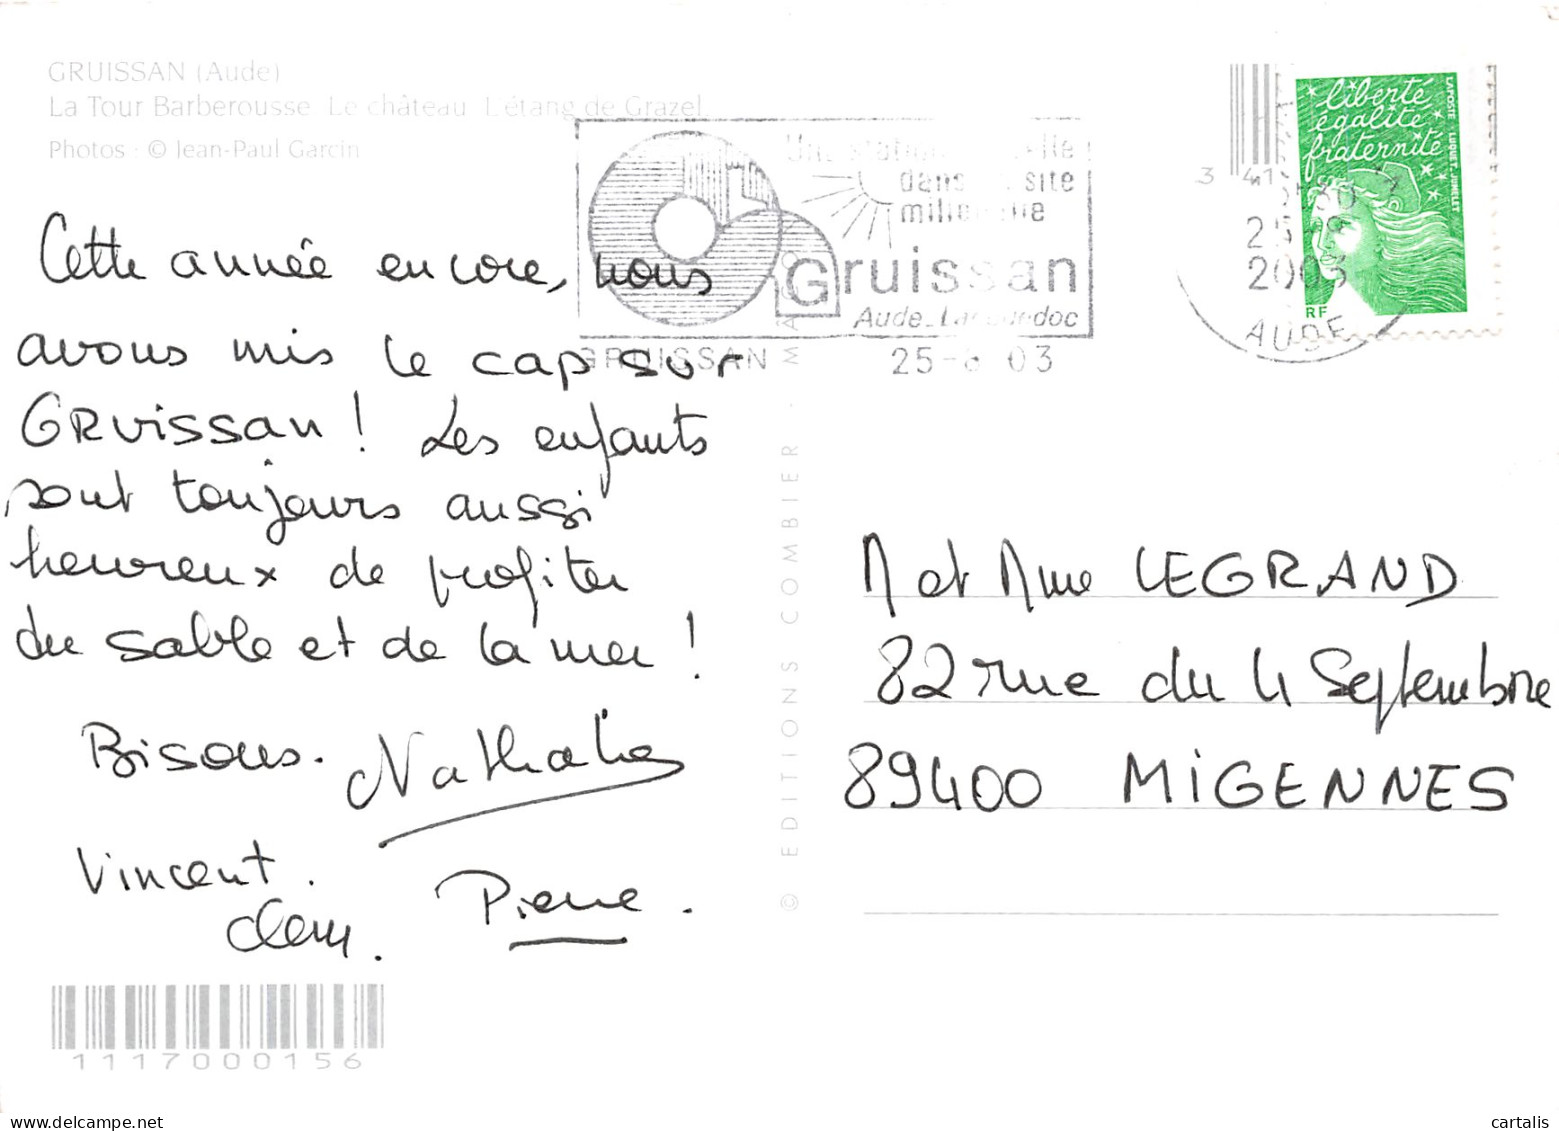 GRUISSAN (Aude)
La Tour Barberousse Le château L'étang de Grazel
Photos · © Jean-Paul Garcin
Cette année encore, nous
avons mis le cap sur
GRUISSAN ! Les enfants
sont toujours aussi
heureux de profiter
du sable et de la mer !
Bisous. Nathalie
Vincent.
Clem.
Pierre.
1117000156
© EDITIONS COMBIER
dans site
Gruissan
Aude
GRUISSAN
25- 03
liberté
égalité
fraternité
LAPOSTE LUQUET JUMELET
RF
3 41
2003
AUDE
M et Mme LEGRAND
82 rue du 4 Septembre
89400 MiGENNES
www.delcampe.net
cartalis